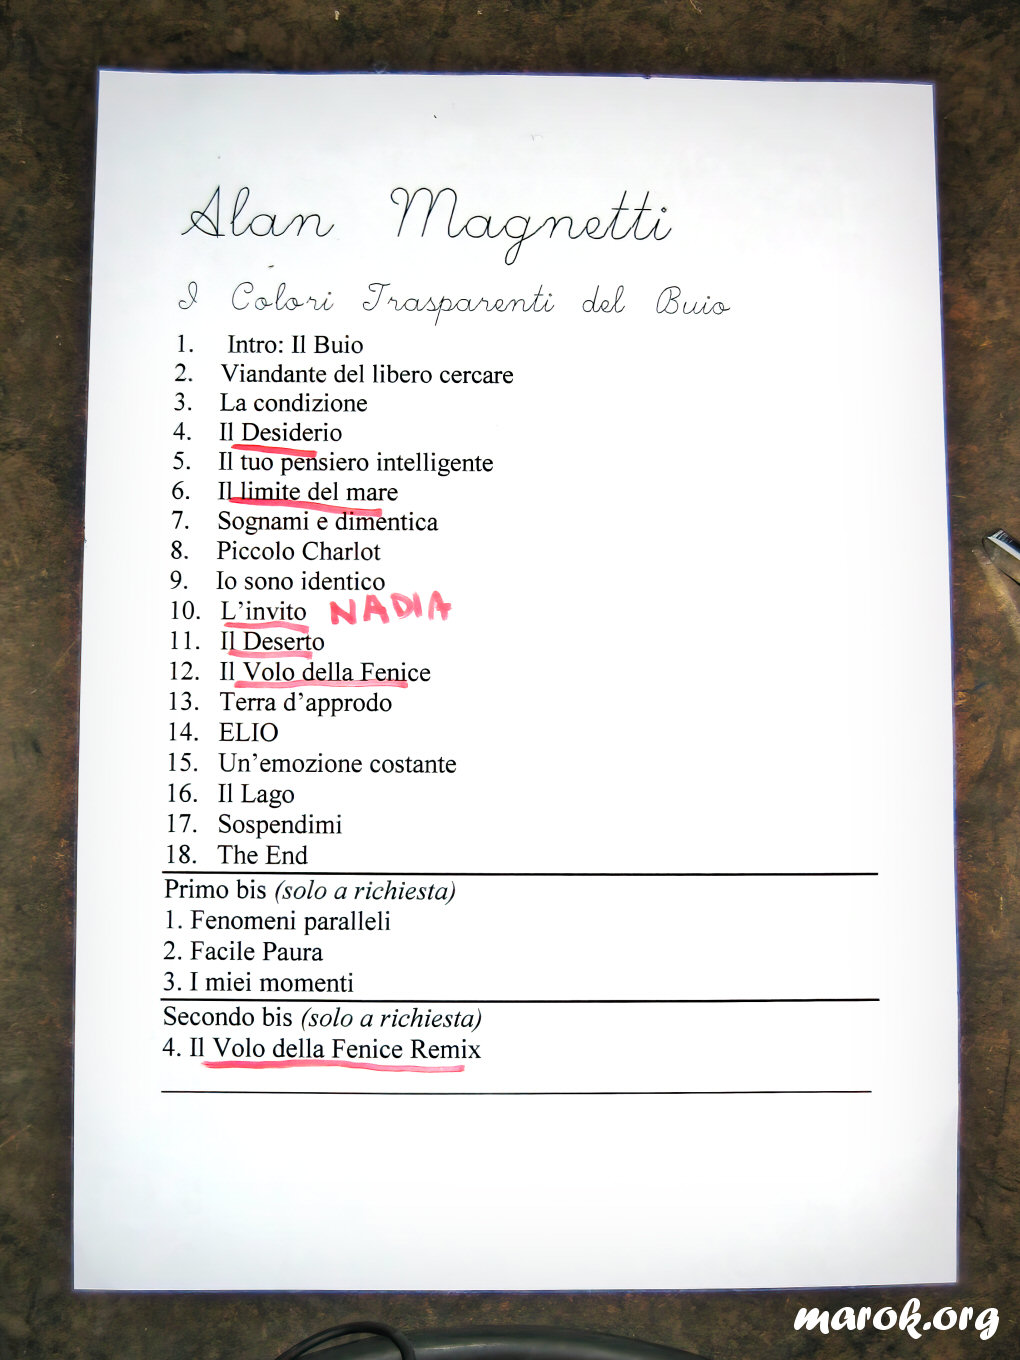 Alan Magnetti
I Colori Trasparenti del Buio
1. Intro: Il Buio
2. Viandante del libero cercare
3. La condizione
4. Il Desiderio
5. Il tuo pensiero intelligente
6. Il limite del mare
7. Sognami e dimentica
8. Piccolo Charlot
9. Io sono identico
10. L'invito NADIA
11. Il Deserto
12. Il Volo della Fenice
13. Terra d'approdo
14. ELIO
15. Un'emozione costante
16. Il Lago
17. Sospendimi
18. The End
Primo bis (solo a richiesta)
1. Fenomeni paralleli
2. Facile Paura
3. I miei momenti
Secondo bis (solo a richiesta)
4. Il Volo della Fenice Remix
marok.org